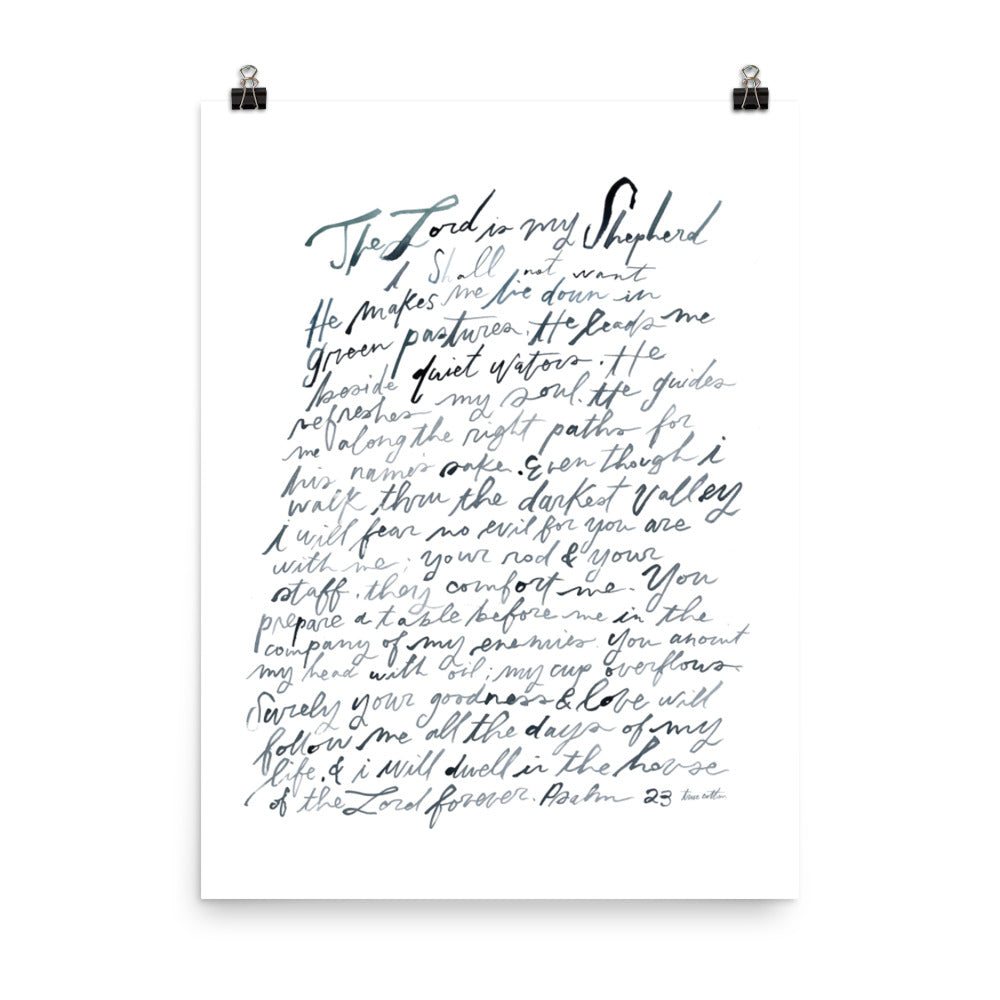 The Lord is my Shepherd
I Shall not want
He makes me lie down in
green pastures. He leads me
beside quiet waters. He
refreshes my soul. He guides
me along the right paths for
his name's sake. Even though i
walk thru the darkest valley
i will fear no evil for you are
with me; your rod & your
staff, they comfort me. You
prepare a table before me in the
company of my enemies. you anoint
my head with oil; my cup overflows.
Surely your goodness & love will
follow me all the days of my
life, & i will dwell in the house
of the Lord forever. Psalm 23